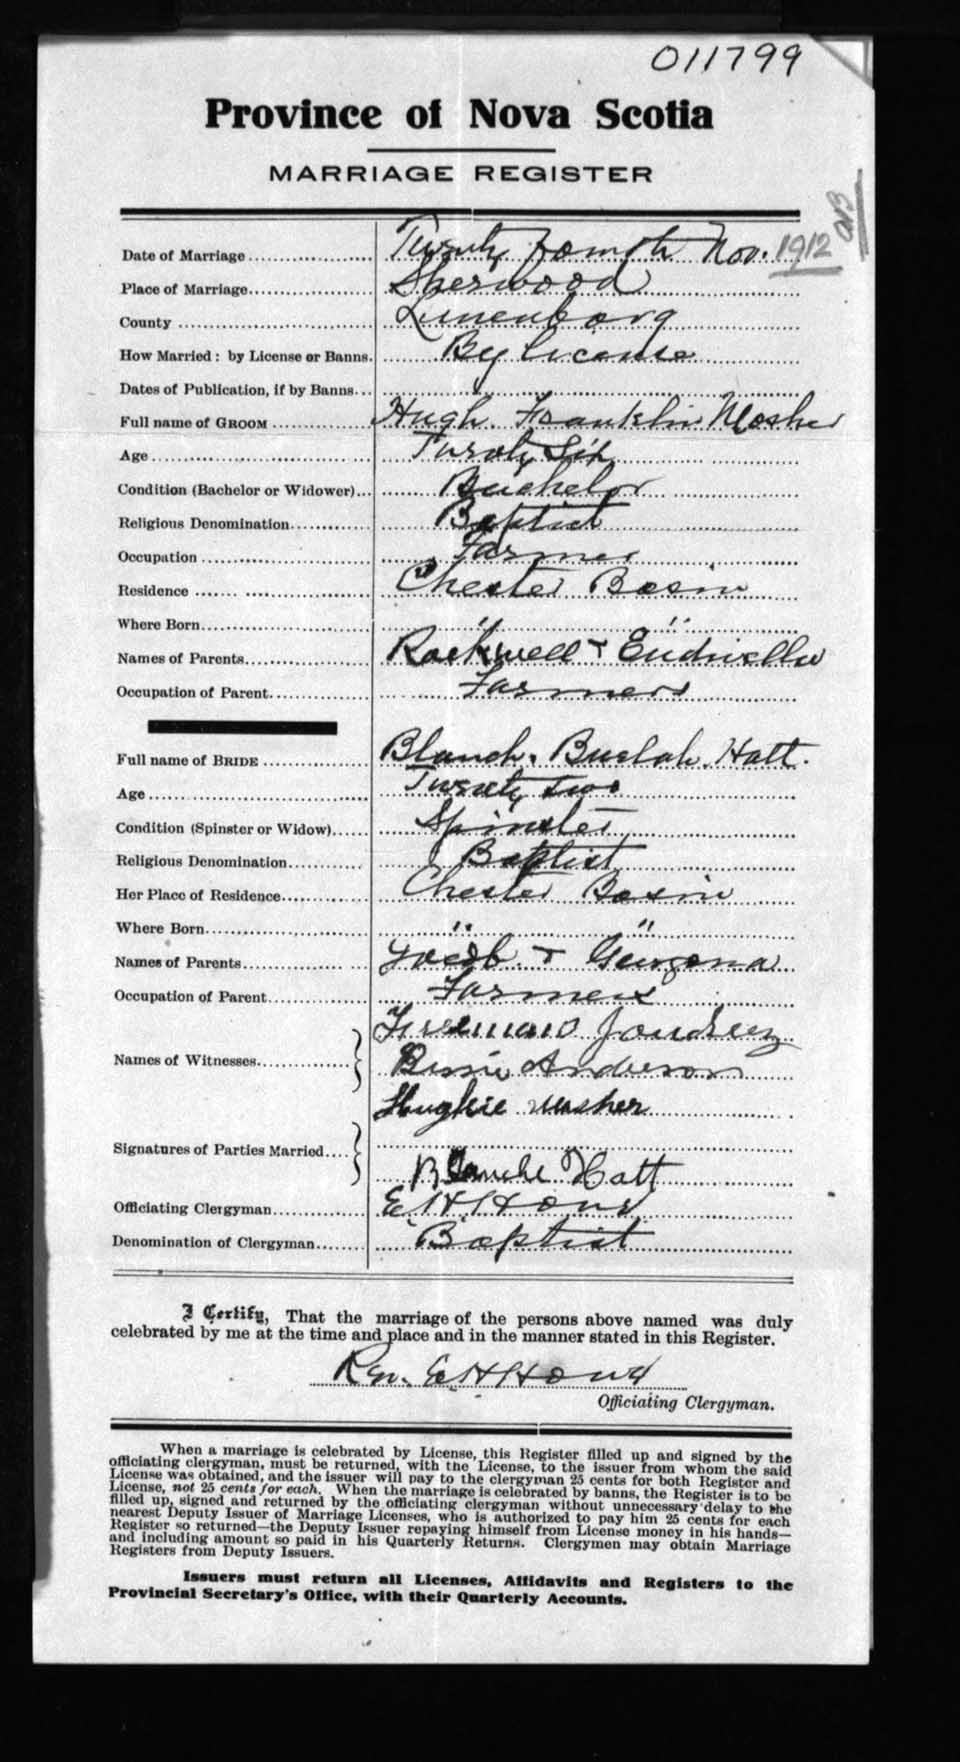 011799
Province of Nova Scotia
MARRIAGE REGISTER
Date of Marriage Twenty fourth Nov. 1912
Place of Marriage Sherwood
County Lunenborg
How Married: by License or Banns. By License
Dates of Publication, if by Banns
Full name of GROOM Hugh Franklin Mosher
Age Twenty Six
Condition (Bachelor or Widower) Bachelor
Religious Denomination Baptist
Occupation Farmer
Residence Chester Basin
Where Born " "
Names of Parents Rockwell +
Occupation of Parent Farmers
Full name of BRIDE Blanch. Buelah Hatt.
Age Twenty two
Condition (Spinster or Widow) Spinster
Religious Denomination Baptist
Her Place of Residence Chester Basin
Where Born " "
Names of Parents +
Occupation of Parent Farmers
Freeman Joudrey
Names of Witnesses Bessie Anderson
Hughie Mosher
Signatures of Parties Married
Blanche Hatt
Officiating Clergyman E. H.
Denomination of Clergyman Baptist
I Certify, That the marriage of the persons above named was duly
celebrated by me at the time and place and in the manner stated in this Register.
Rev. E. H.
Officiating Clergyman.
When a marriage is celebrated by License, this Register filled up and signed by the
officiating clergyman, must be returned, with the License, to the issuer from whom the said
License was obtained, and the issuer will pay to the clergyman 25 cents for both Register and
License, not 25 cents for each. When the marriage is celebrated by banns, the Register is to be
filled up, signed and returned by the officiating clergyman without unnecessary delay to the
nearest Deputy Issuer of Marriage Licenses, who is authorized to pay him 25 cents for each
Register so returned—the Deputy Issuer repaying himself from License money in his hands—
and including amount so paid in his Quarterly Returns. Clergymen may obtain Marriage
Registers from Deputy Issuers.
Issuers must return all Licenses, Affidavits and Registers to the
Provincial Secretary's Office, with their Quarterly Accounts.